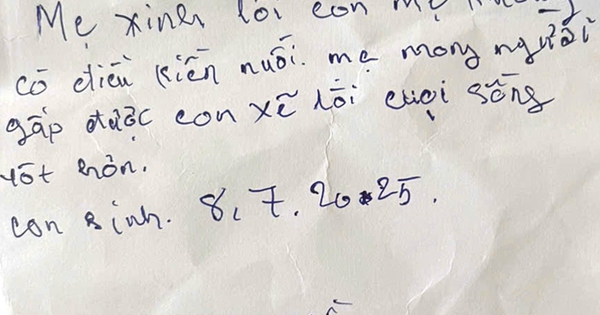 Mẹ xinh lỗi con mẹ
có điều kiến nuối. mẹ mong người
gấp được con xẽ lỗi cuọi sống
tốt hơn.
con sinh. 8, 7. 2025.